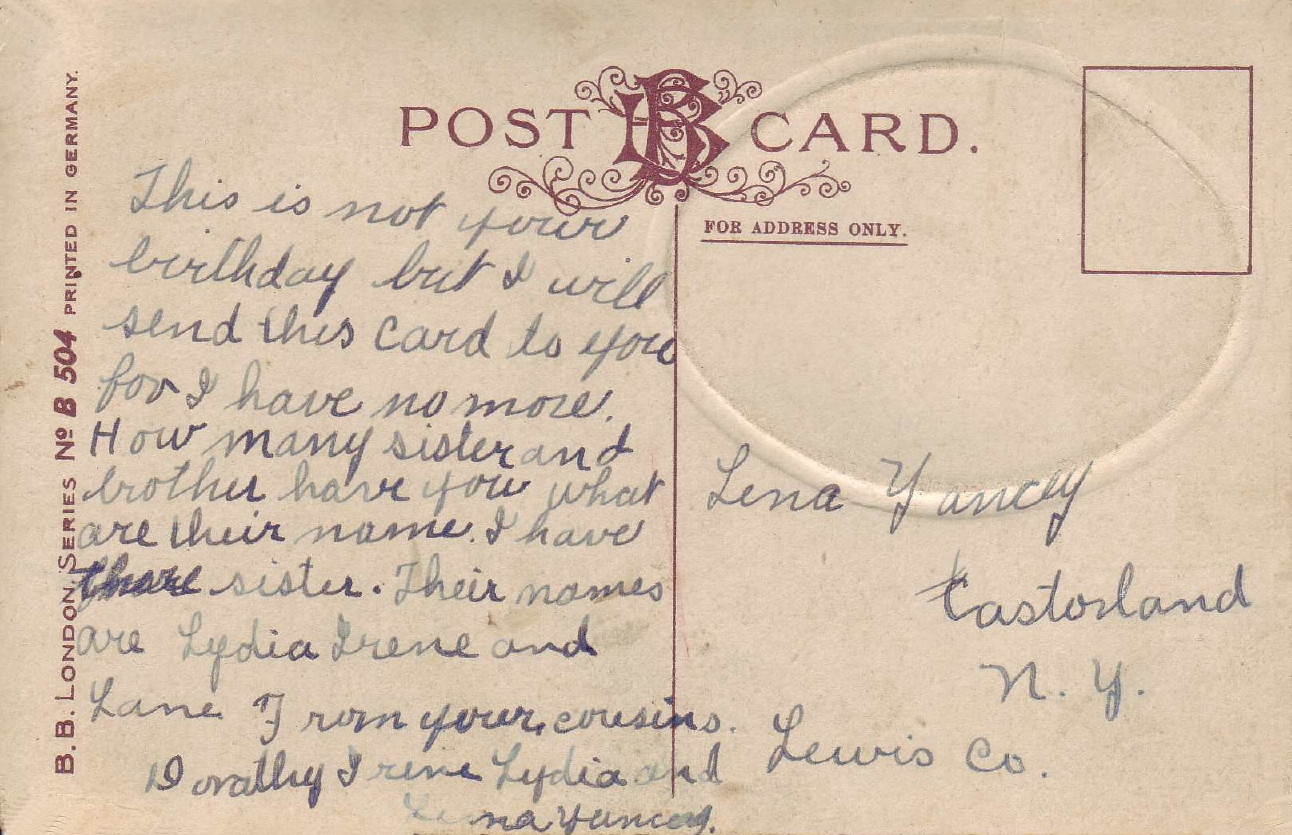 POST BB CARD.
FOR ADDRESS ONLY.
B.B. LONDON SERIES No B 504 PRINTED IN GERMANY.
This is not your
birthday but I will
send this card to you
for I have no more.
How many sister and
brother have you what
are their name. I have
sister. Their names
are Lydia Irene and
Lane From your cousins.
Dorathy Irene Lydia and
Lena Yancey.
Lena Yancey
Castorland
N. Y.
Lewis Co.